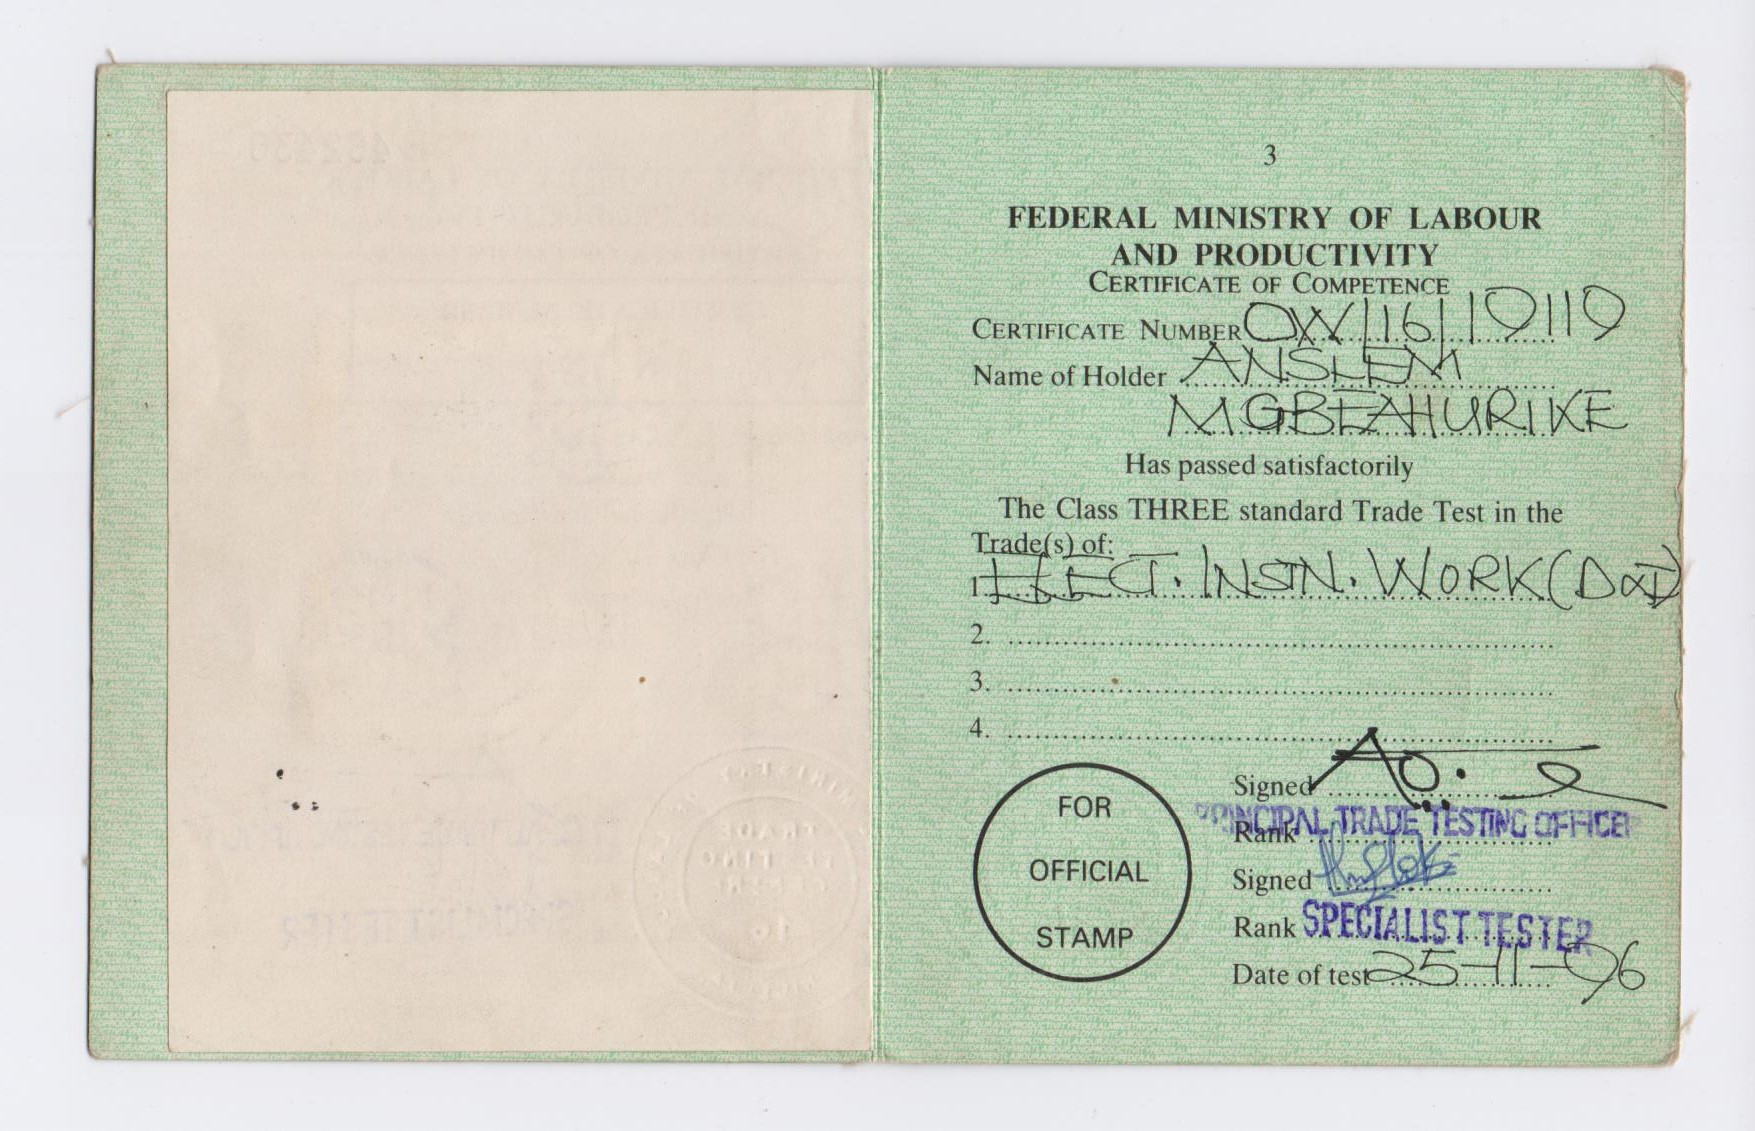 3
FEDERAL MINISTRY OF LABOUR
AND PRODUCTIVITY
CERTIFICATE OF COMPETENCE
CERTIFICATE NUMBER OW/16/19119
Name of Holder ANSLEM
MGBEAHURIKE
Has passed satisfactorily
The Class THREE standard Trade Test in the
Trade(s) of:
1. ELECT. INSTN. WORK (D&I)
2.
3.
4.
FOR
OFFICIAL
STAMP
Signed
Rank PRINCIPAL TRADE TESTING OFFICER
Signed
Rank SPECIALIST TESTER
Date of test 25-11-96